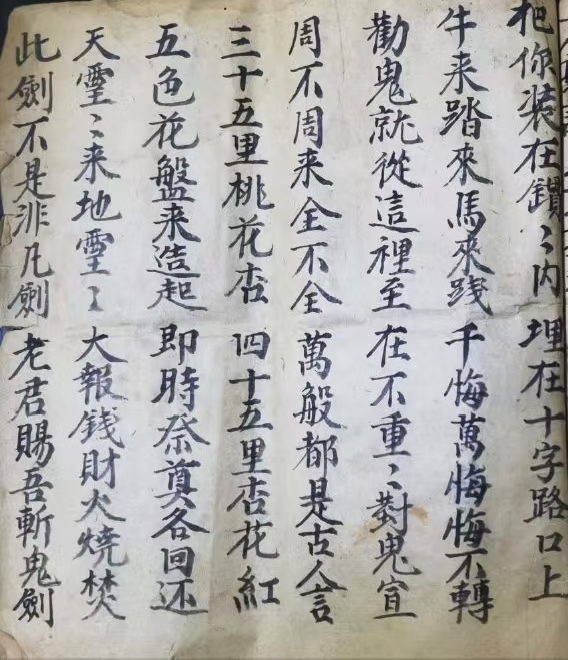 把你装在鑽〻内 埋在十字路口上
牛来踏來馬來踐 千悔萬悔悔不轉
勸鬼就從這裡至 在不重〻對鬼宣
周不周来全不全 萬般都是古人言
三十五里桃花杏 四十五里杏花紅
五色花盤来造起 即時祭奠各回还
天霊〻来地霊〻 大報錢財火燒焚
此劍不是非凡劍 老君賜吾斬鬼劍